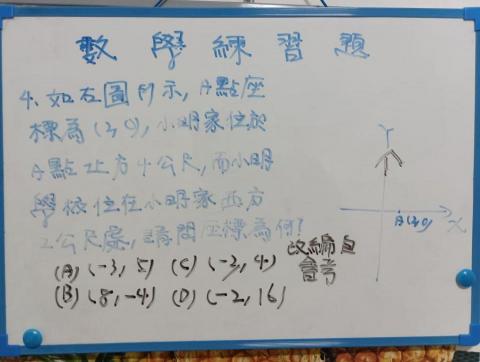 數學練習題
4.如右圖所示,A點座
標為(3,0),小明家位於
A點北方4公尺,而小明
學校位在小明家西方
2公尺處,請問座標為何?
(A)(-3,5) (C)(-3,4)
(B)(8,-4) (D)(-2,16)
改編自
會考
Y
A(3,0)
X